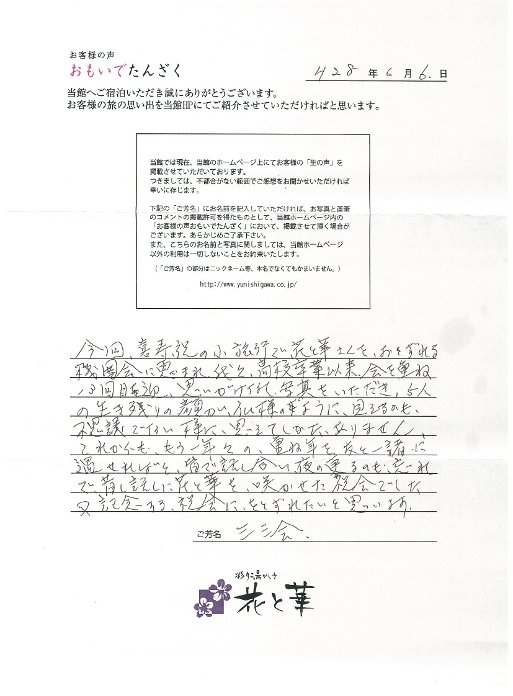 お客様の声
おもいでたんざく
428年6月6.日
当館へご宿泊いただき誠にありがとうございます。
お客様の旅の思い出を当館HPにてご紹介させていただければと思います。
当館では現在、当館のホームページ上にてお客様の「生の声」を
掲載させていただいております。
つきましては、不都合がない範囲でご感想をお聞かせいただければ
幸いに存じます。
下記の「ご芳名」にお名前を記入していただければ、お写真と直筆
のコメントの掲載許可を得たものとして、当館ホームページ内の
「お客様の声おもいでたんざく」において、掲載させて頂く場合が
ございます。あらかじめご了承下さい。
また、こちらのお名前と写真に関しましては、当館ホームページ
以外の利用は一切しないことをお約束いたします。
（「ご芳名」の部分はニックネーム等、本名でなくてもかまいません。）
http://www.yunishigawa.co.jp/
今回、喜寿祝の小旅行で花と華さんを、おとずれる
機会に恵まれ 高校卒業以来、会を重ね
回目 思いがけず 写真をいただき、5人
の生き残りの顔が、仏様のように、思えるのも、
不思議でない様に、思えてしかたありません。
これからも、もう一年々の、重ね年を、友と一緒に
過せればと、皆で話し合い 夜の更るのも、忘れ
て、昔し話しに花と華を、咲かせた祝会でした
又 記念する、祝会に、おとずれたいと思います。
ご芳名 三三会
花と華